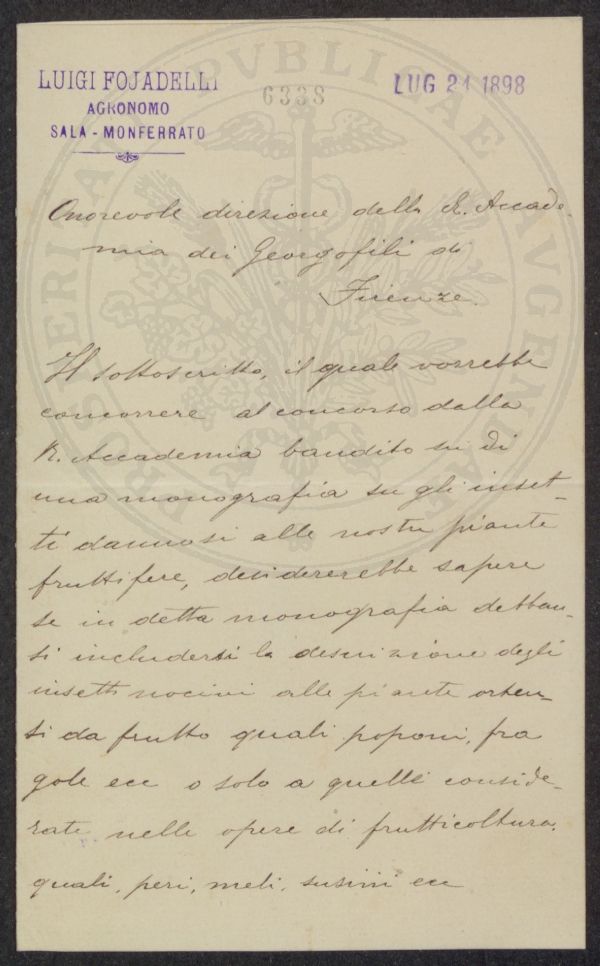 LUIGI FOJADELLI
AGRONOMO
SALA - MONFERRATO
6338
LUG 24 1898
PROSPERITATI PVBLICAE AVGENDAE
Onorevole direzione della R. Accade-
mia dei Georgofili di
Firenze.
Il sottoscritto, il quale vorrebbe
concorrere al concorso dalla
R. Accademia bandito su di
una monografia su gli inset-
ti dannosi alle nostre piante
fruttifere, desidererebbe sapere
se in detta monografia debban-
si includersi la descrizione degli
insetti nocivi alle piante orten-
si da frutto quali poponi, fra
gole ecc o solo a quelle conside-
rate nelle opere di frutticoltura,
quali, peri, meli, susini ecc